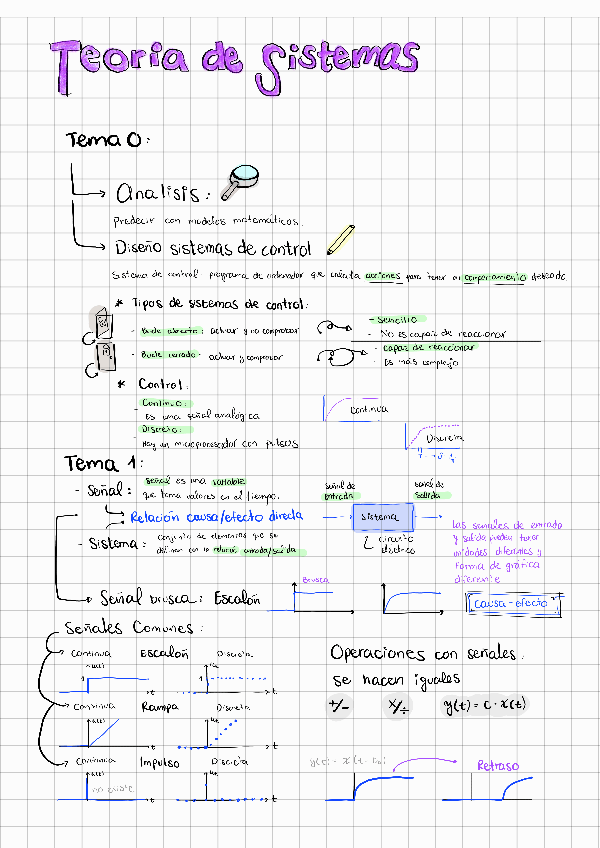 Teoria de Sistemas
Tema 0:
Analisis:
Predecir con modelos matemáticos.
Diseño sistemas de control
Sistema de control programa de ordenador que ejecuta acciones para tener un comportamiento deseado.
* Tipos de sistemas de control:
- Bucle abierto: activar y no comprobar
- Sencillo
- No es capaz de reaccionar
- Bucle cerrado: activar y comprobar
- capaz de reaccionar
- Es más complejo
* Control:
- Continuo:
Es una señal analógica
- Discreto:
Hay un microprocesador con pulsos
Continua
Discreta
Tema 1:
- Señal: Señal es una variable
que toma valores en el tiempo.
Relación causa/efecto directa
- Sistema: Conjunto de elementos que se
definen con la relación entrada/salida
señal de
entrada
señal de
salida
Sistema
circuito
eléctrico
las señales de entrada
y salida pueden tener
unidades diferentes y
forma de gráfica
diferente
Causa-efecto
Señal brusca: Escalón
Brusca
Señales Comunes:
Continua Escalón Discreta
1 t 1 t
Continua Rampa Discreta
t t
Continua Impulso Discreta
no existe t t
Operaciones con señales:
se hacen iguales
+/- x/÷ y(t) = C · x(t)
Retraso